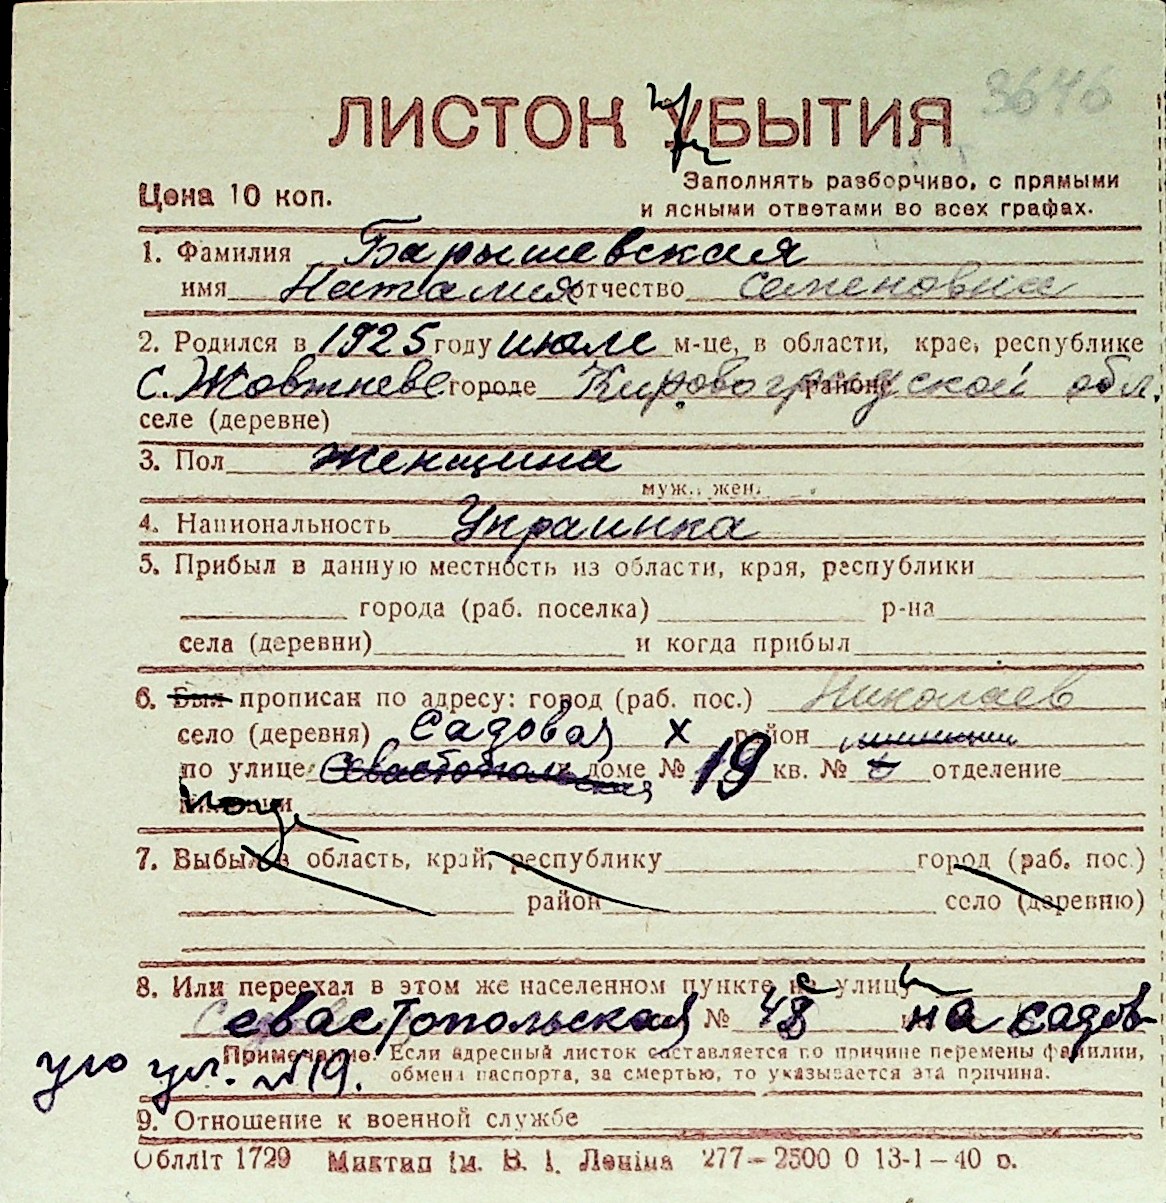 3646
ЛИСТОК УБЫТИЯ
Цена 10 коп.
Заполнять разборчиво, с прямыми
и ясными ответами во всех графах.
1. Фамилия Барышевская
имя Наталия отчество Семеновна
2. Родился в 1925 году июле м-це, в области, крае, республике
с. Жовтневе городе Кировоградской районе обл.
селе (деревне)
3. Пол женщина
муж., жен.
4. Национальность Украинка
5. Прибыл в данную местность из области, края, республики
города (раб. поселка) р-на
села (деревни) и когда прибыл
6. Был прописан по адресу: город (раб. пос.) Николаев
село (деревня) Садовая х район
по улице Севастопольская доме № 19 кв. № отделение
милиции
7. Выбыл в область, край, республику город (раб. пос.)
район село (деревню)
8. Или переехал в этом же населенном пункте с улицы
Севастопольская № 48 на садов-
Примечание: Если адресный листок составляется по причине перемены фамилии,
ую ул. №19. обмена паспорта, за смертью, то указывается эта причина.
9. Отношение к военной службе
Обллiт 1729 Миктип iм. В. I. Ленiна 277–2500 0 13-1–40 р.